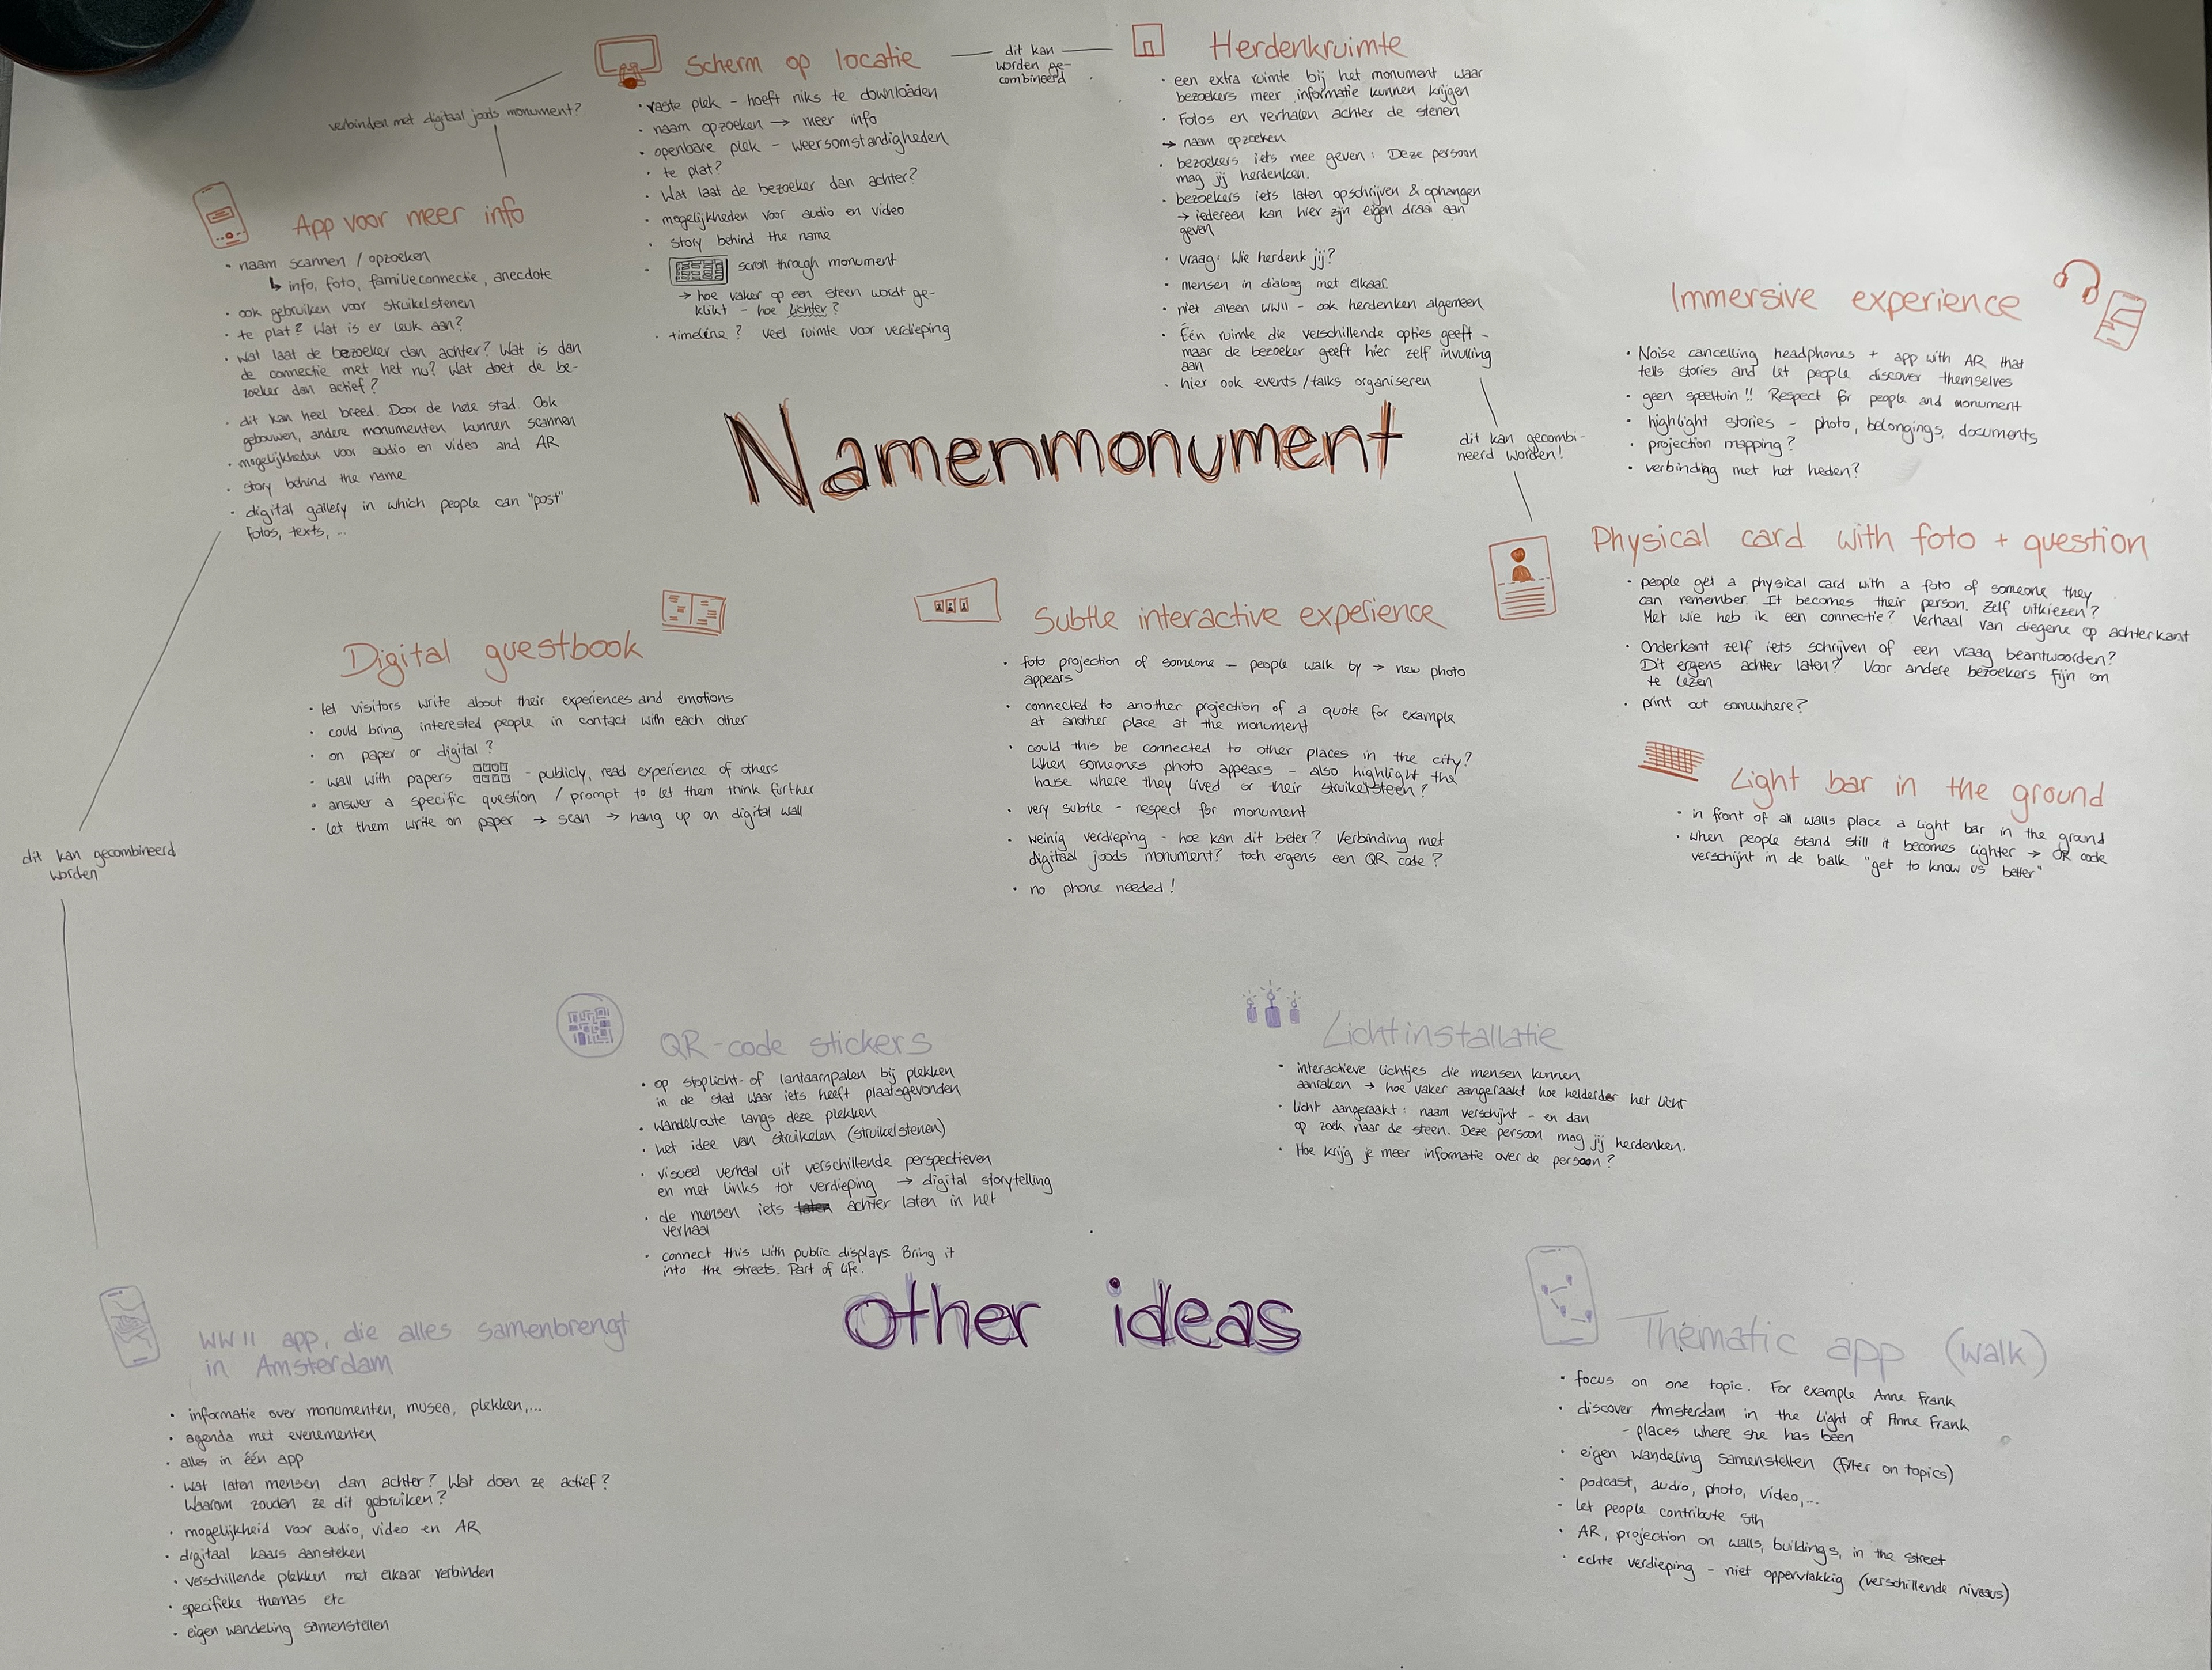 Namenmonument
Scherm op locatie
• vaste plek - hoeft niks te downloaden
• naam opzoeken → meer info
• openbare plek - weersomstandigheden
• te plat?
• Wat laat de bezoeker dan achter?
• mogelijkheden voor audio en video
• story behind the name
• scroll through monument
→ hoe vaker op een steen wordt ge-
klikt - hoe lichter?
• timeline? veel ruimte voor verdieping
dit kan
worden ge-
combineerd
Herdenkruimte
• een extra ruimte bij het monument waar
bezoekers meer informatie kunnen krijgen
• Fotos en verhalen achter de stenen
→ naam opzoeken
• bezoekers iets mee geven: Deze persoon
mag jij herdenken.
• bezoekers iets laten opschrijven & ophangen
→ iedereen kan hier zijn eigen draai aan
geven
• vraag: Wie herdenk jij?
• mensen in dialog met elkaar.
• niet alleen WWII - ook herdenken algemeen
• Één ruimte die verschillende opties geeft -
maar de bezoeker geeft hier zelf invulling
aan
• hier ook events/talks organiseren
verbinden met digitaal joods monument?
App voor meer info
• naam scannen / opzoeken
↳ info, foto, familieconnectie, anecdote
• ook gebruiken voor struikelstenen
• te plat? Wat is er leuk aan?
• Wat laat de bezoeker dan achter? Wat is dan
de connectie met het nu? Wat doet de be-
zoeker dan actief?
• dit kan heel breed. Door de hele stad. Ook
gebouwen, andere monumenten kunnen scannen
• mogelijkheden voor audio en video and AR
• story behind the name
• digital gallery in which people can "post"
fotos, texts, ...
dit kan gecombi-
neerd worden!
Immersive experience
• Noise cancelling headphones + app with AR that
tells stories and let people discover themselves
• geen speeltuin!! Respect for people and monument
• highlight stories - photo, belongings, documents
• projection mapping?
• verbinding met het heden?
Physical card with foto + question
• people get a physical card with a foto of someone they
can remember. It becomes their person. Zelf uitkiezen?
Met wie heb ik een connectie? Verhaal van diegene op achterkant
• Onderkant zelf iets schrijven of een vraag beantwoorden?
Dit ergens achter laten? Voor andere bezoekers fijn om
te lezen
• print out somewhere?
Digital guestbook
• let visitors write about their experiences and emotions
• could bring interested people in contact with each other
• on paper or digital?
• wall with papers - publicly, read experience of others
• answer a specific question / prompt to let them think further
• let them write on paper → scan → hang up on digital wall
Subtle interactive experience
• foto projection of someone - people walk by → new photo
appears
• connected to another projection of a quote for example
at another place at the monument
• could this be connected to other places in the city?
When someones photo appears - also highlight the
house where they lived or their struikelsteen?
• very subtle - respect for monument
• weinig verdieping - hoe kan dit beter? Verbinding met
digitaal joods monument? toch ergens een QR code?
• no phone needed!
Light bar in the ground
• in front of all walls place a light bar in the ground
• when people stand still it becomes lighter → QR code
verschijnt in de balk "get to know us better"
dit kan gecombineerd
worden
other ideas
QR-code stickers
• op stoplicht- of lantaarnpalen bij plekken
in de stad waar iets heeft plaatsgevonden
• wandelroute langs deze plekken
• het idee van struikelen (struikelstenen)
• visueel verhaal uit verschillende perspectieven
en met links tot verdieping → digital storytelling
• de mensen iets laten achter laten in het
verhaal
• connect this with public displays. Bring it
into the streets. Part of life.
Lichtinstallatie
• interactieve lichtjes die mensen kunnen
aanraken → hoe vaker aangeraakt hoe helderder het licht
• licht aangeraakt: naam verschijnt - en dan
op zoek naar de steen. Deze persoon mag jij herdenken.
• Hoe krijg je meer informatie over de persoon?
WWII app, die alles samenbrengt
in Amsterdam
• informatie over monumenten, musea, plekken,...
• agenda met evenementen
• alles in één app
• wat laten mensen dan achter? Wat doen ze actief?
Waarom zouden ze dit gebruiken?
• mogelijkheid voor audio, video en AR
• digitaal kaars aansteken
• verschillende plekken met elkaar verbinden
• specifieke themas etc
• eigen wandeling samenstellen
Thematic app (walk)
• focus on one topic. For example Anne Frank
• discover Amsterdam in the light of Anne Frank
- places where she has been
• eigen wandeling samenstellen (filter on topics)
• podcast, audio, photo, video,...
• let people contribute sth
• AR, projection on walls, buildings, in the street
• echte verdieping - niet oppervlakkig (verschillende niveaus)